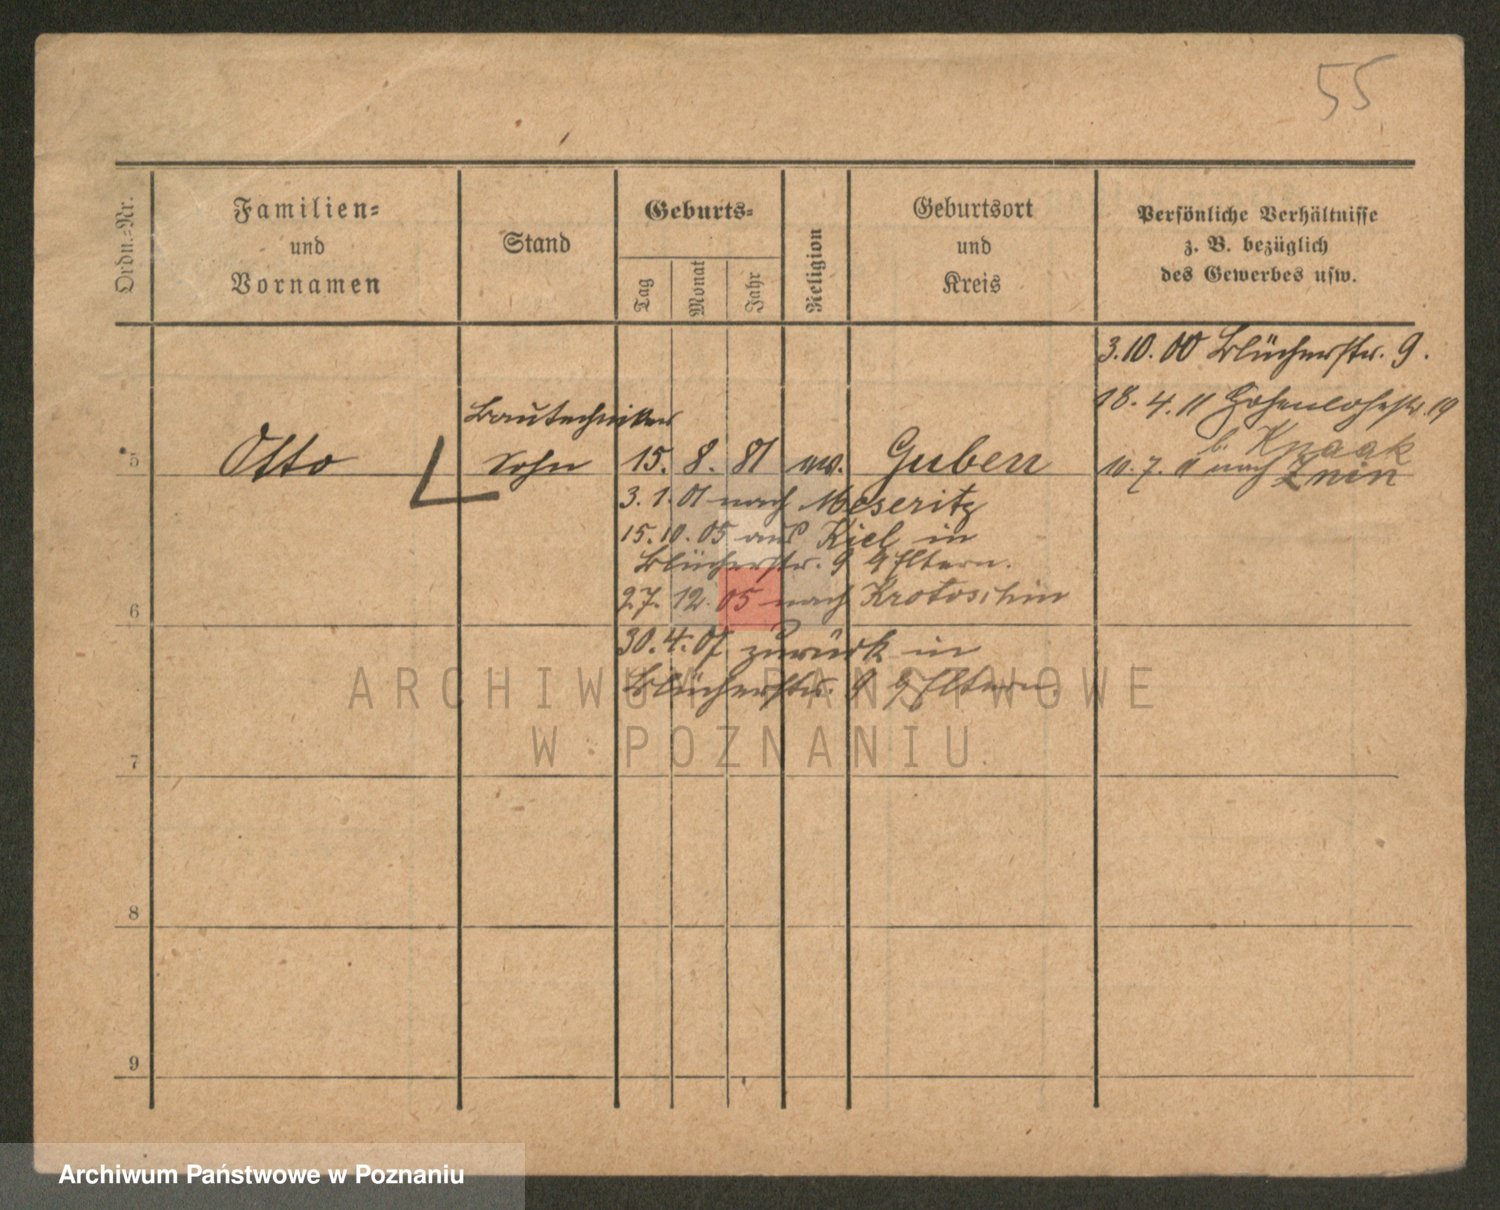 55
Ordn.-Nr.
Familien-
und
Vornamen
Stand
Geburts-
Tag
Monat
Jahr
Religion
Geburtsort
und
Kreis
Persönliche Verhältnisse
z. B. bezüglich
des Gewerbes usw.
3.10.00 Blücherstr. 9.
18.4.11 Hohenlohestr. 19
b. Knaak
Bautechniker
5 Otto Sohn 15. 8. 81 ev. Guben 11.7.11 nach Znin
3.1.01 nach Meseritz
15.10.05 aus Kiel in
Blücherstr. 9 Eltern.
6 27.12.05 nach Krotoschin
30.4.07 zurück in
Blücherstr. 9 Eltern.
ARCHIWUM PAŃSTWOWE
W POZNANIU
7
8
9
Archiwum Państwowe w Poznaniu